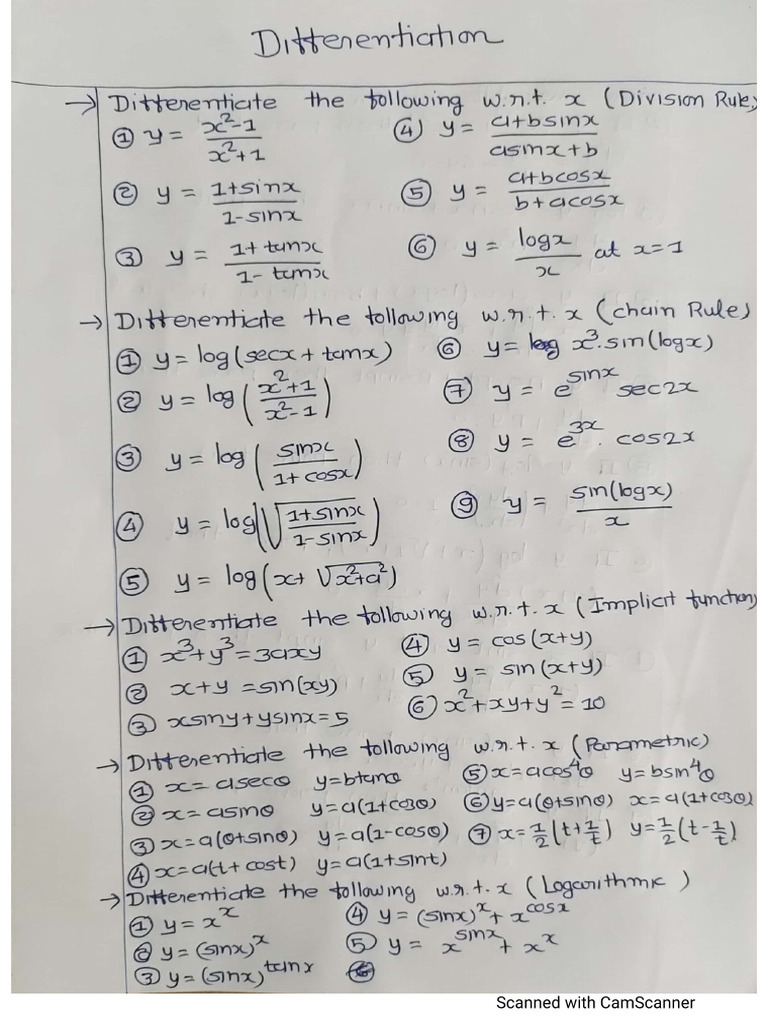 Differentiation
→ Differentiate the following w.r.t. x (Division Rule)
① y = (x²-1)/(x²+1)
④ y = (a+bsinx)/(asinx+b)
② y = (1+sinx)/(1-sinx)
⑤ y = (a+bcosx)/(b+acosx)
③ y = (1+tanx)/(1-tanx)
⑥ y = logx/x at x=1
→ Differentiate the following w.r.t. x (chain Rule)
① y = log(secx+tanx)
⑥ y = x³.sin(logx)
② y = log((x²+1)/(x²-1))
⑦ y = e^sinx sec2x
③ y = log(sinx/(1+cosx))
⑧ y = e^3x. cos2x
④ y = log(√((1+sinx)/(1-sinx)))
⑨ y = sin(logx)/x
⑤ y = log(x+√(x²+a²))
→ Differentiate the following w.r.t. x (Implicit function)
① x³+y³=3axy
④ y = cos(x+y)
② x+y =sin(xy)
⑤ y = sin(x+y)
③ xsiny+ysinx=5
⑥ x²+xy+y²=10
→ Differentiate the following w.r.t. x (Parametric)
① x=asecθ y=btanθ
⑤ x=acos⁴θ y=bsin⁴θ
② x=asinθ y=a(1+cosθ)
⑥ y=a(θ+sinθ) x=a(1+cosθ)
③ x=a(θ+sinθ) y=a(1-cosθ)
⑦ x=1/2(t+1/t) y=1/2(t-1/t)
④ x=a(t+cost) y=a(1+sint)
→ Differentiate the following w.r.t. x (Logarithmic)
① y=x^x
④ y=(sinx)^x+x^cosx
② y=(sinx)^x
⑤ y= x^sinx + x^x
③ y=(sinx)^tanx
⑥
Scanned with CamScanner